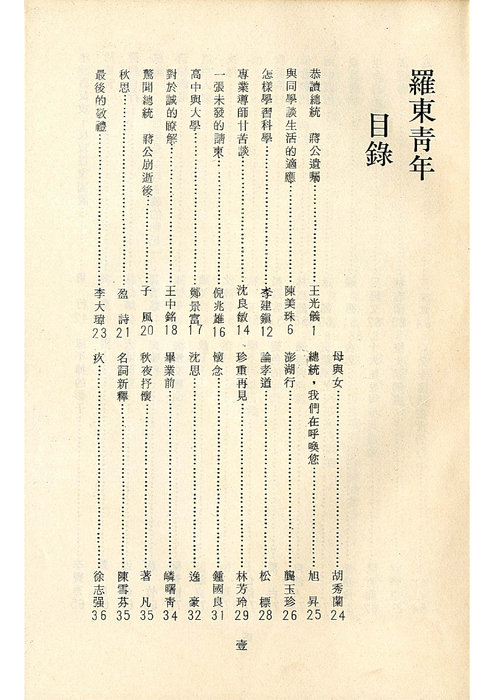 羅東青年
目錄
恭讀總統　蔣公遺囑……王光儀 1
與同學談生活的適應……陳美珠 6
怎樣學習科學……李建鎮 12
專業導師甘苦談……沈良敏 14
一張未發的請柬……倪兆雄 16
高中與大學……鄭景富 17
對於誠的瞭解……王中銘 18
驚聞總統　蔣公崩逝後……子　風 20
秋思……盈　詩 21
最後的敬禮……李大瑋 23
母與女……胡秀蘭 24
總統，我們在呼喚您……旭　昇 25
澎湖行……龔玉珍 26
論孝道……松　標 28
珍重再見……林芳玲 29
懷念……鍾國良 31
沈思……逸　豪 32
畢業前……嶙曙青 34
秋夜抒懷……著　凡 35
名詞新釋……陳雪芬 35
疚……徐志强 36
壹